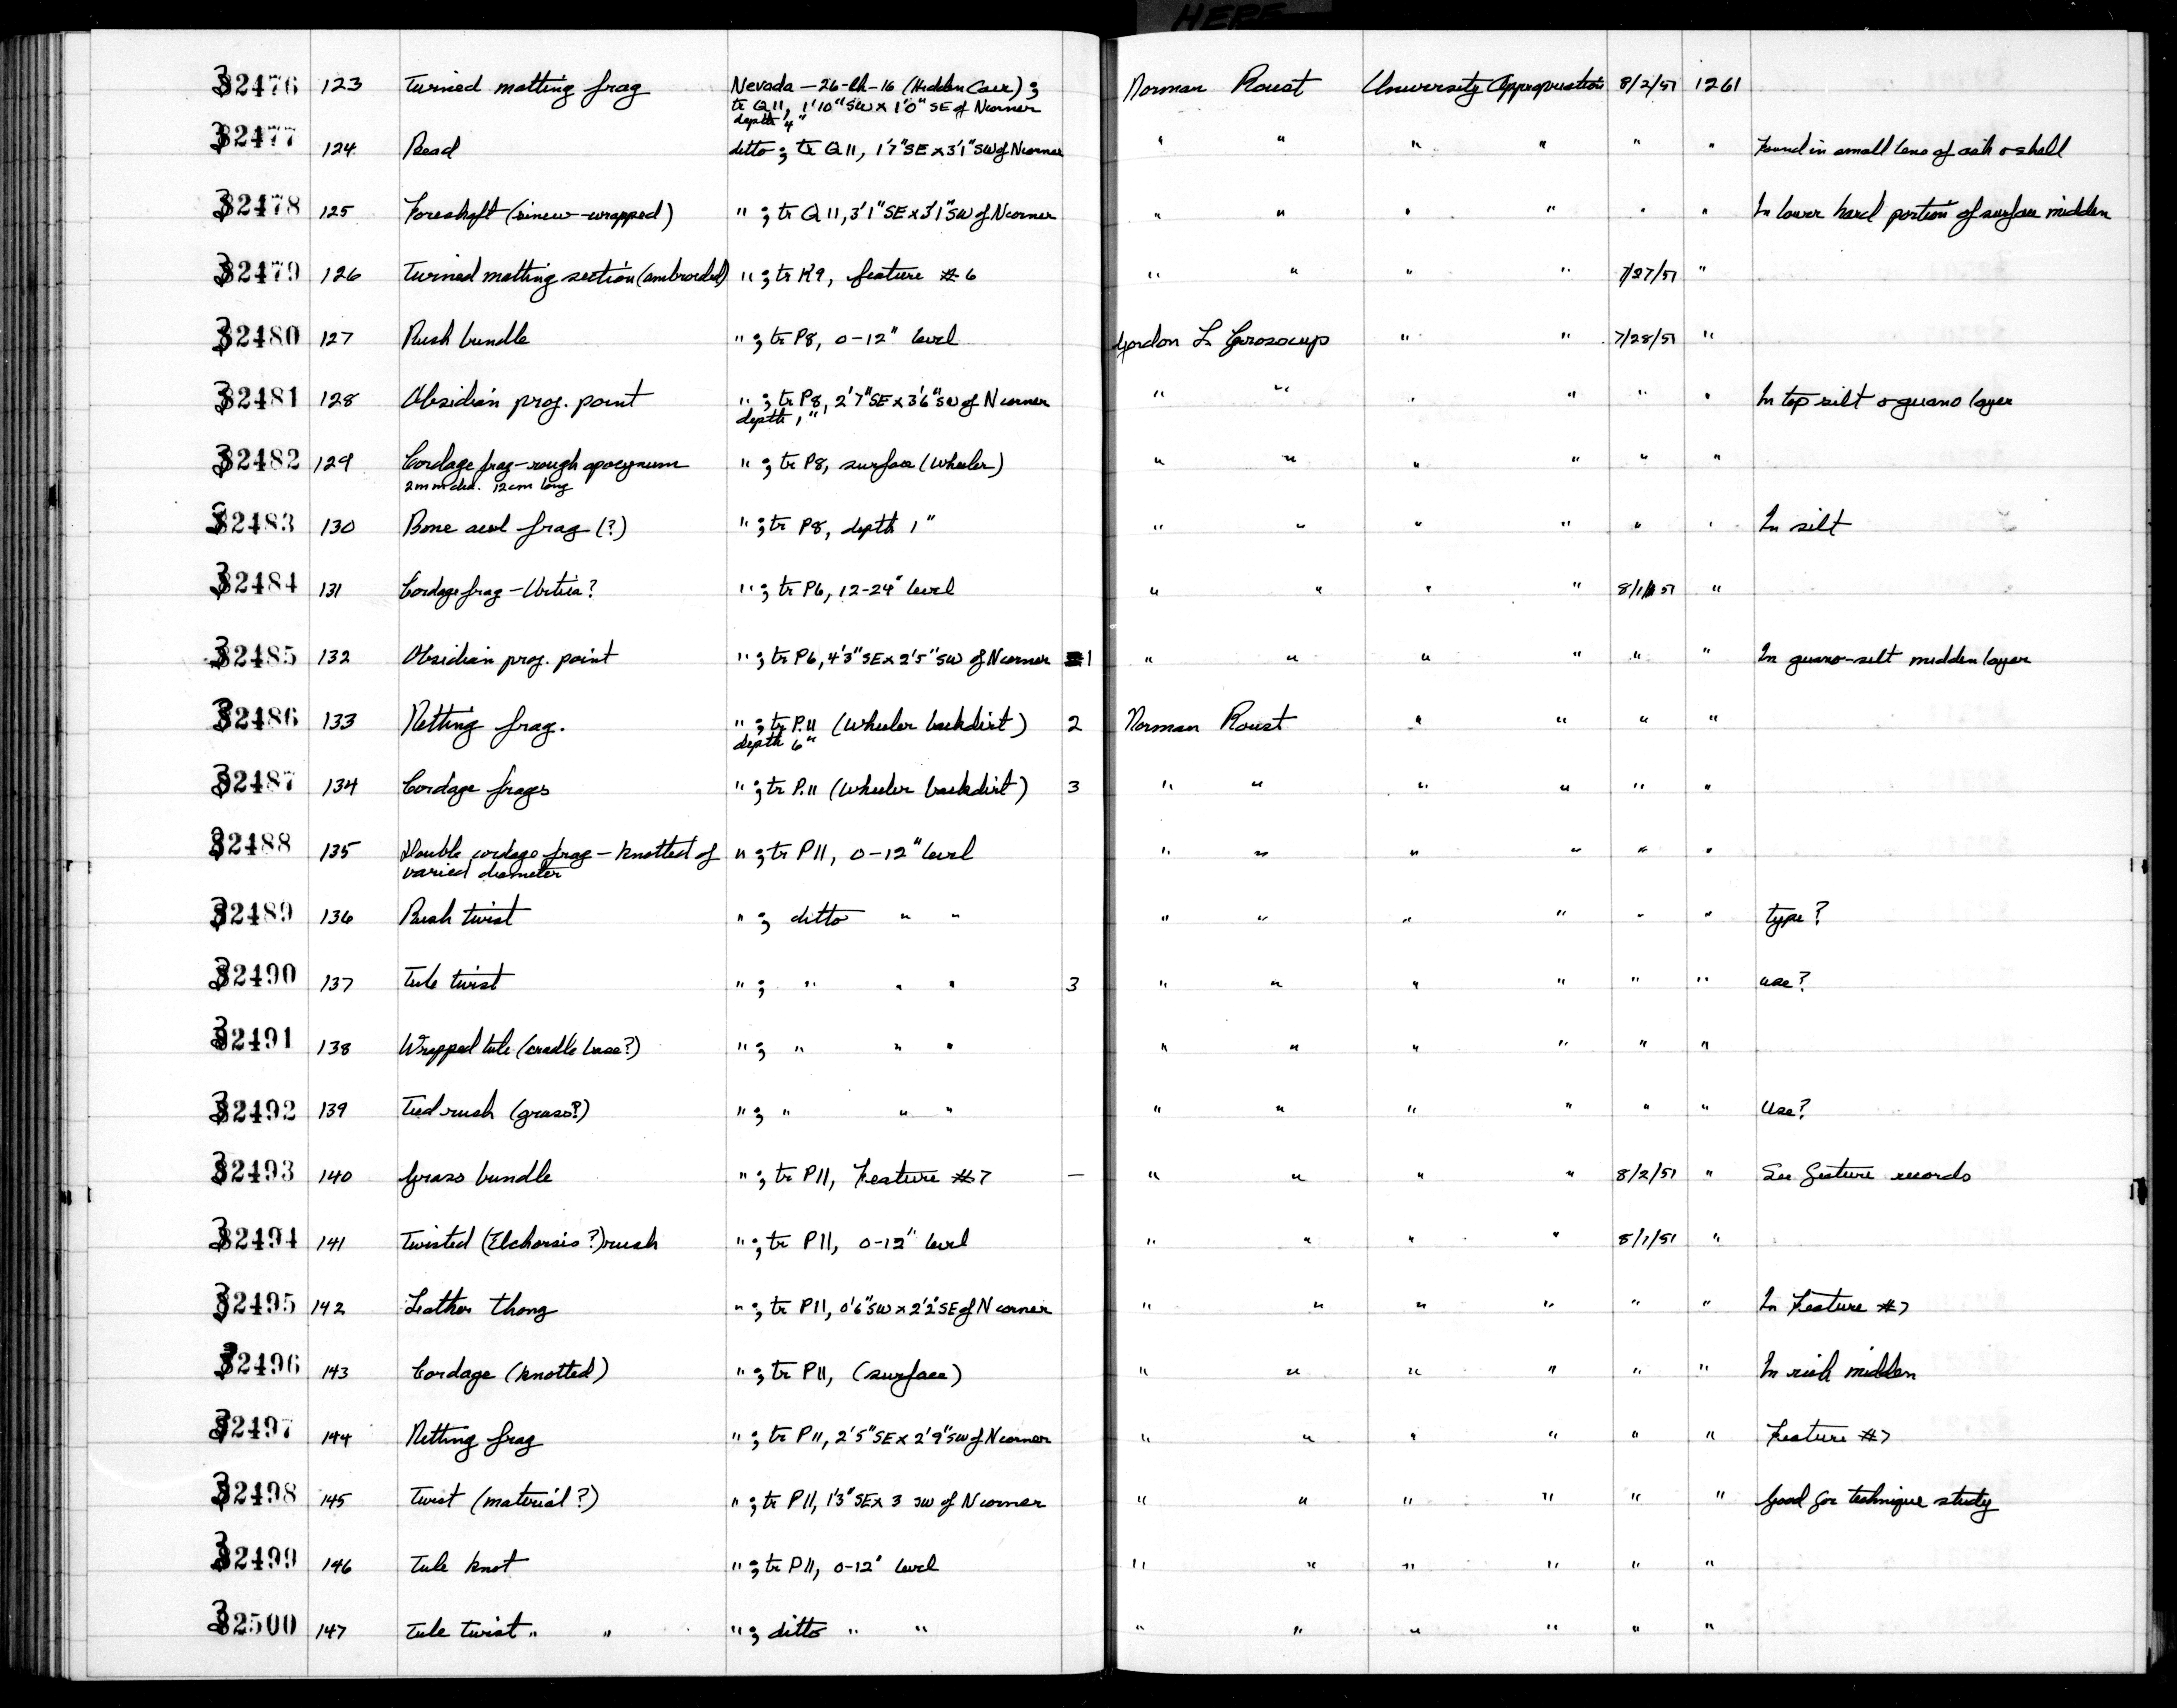 HERE
32476 123 Twined matting frag Nevada – 26-Ch-16 (Hidden Cave); Norman Roust University Appropriation 8/2/51 1261
tr Q11, 1'10" SW x 1'0" SE of N corner
depth 4"
32477 124 Bead ditto; tr Q11, 1'7" SE x 3'1" SW of N corner " " " " " " Found in small lens of ash & shell
32478 125 Foreshaft (sinew-wrapped) " ; tr Q11, 3'1" SE x 3'1" SW of N corner " " " " " " In lower hard portion of surface midden
32479 126 Twined matting section (embroided) " ; tr K9, feature #6 " " " " 7/27/51 "
32480 127 Rush bundle " ; tr P8, 0-12" level Gordon L Grosscup " " 7/28/51 "
32481 128 Obsidian proj. point " ; tr P8, 2'7" SE x 3'6" SW of N corner " " " " " " In top silt & guano layer
depth 1"
32482 129 Cordage frag – rough apocynum " ; tr P8, surface (Wheeler) " " " " " "
2mm dia. 12cm long
32483 130 Bone awl frag (?) " ; tr P8, depth 1" " " " " " " In silt
32484 131 Cordage frag – Urtica? " ; tr P6, 12-24" level " " " " 8/1/51 "
32485 132 Obsidian proj. point " ; tr P6, 4'3" SE x 2'5" SW of N corner 1 " " " " " " In guano-silt midden layer
32486 133 Netting frag. " ; tr P.11 (Wheeler backdirt) 2 Norman Roust " " " "
depth 6"
32487 134 Cordage frags " ; tr P.11 (Wheeler backdirt) 3 " " " " " "
32488 135 Double cordage frag – knotted of " ; tr P11, 0-12" level " " " " " "
varied diameter
32489 136 Rush twist " ; ditto " " " " " " " " type?
32490 137 Tule twist " ; " " " 3 " " " " " " use?
32491 138 Wrapped tule (cradle base?) " ; " " " " " " " " "
32492 139 Tied rush (grass?) " ; " " " " " " " " " Use?
32493 140 Grass bundle " ; tr P11, Feature #7 — " " " " 8/2/51 " See feature records
32494 141 Twisted (Elchorsis?) rush " ; tr P11, 0-12" level " " " " 8/1/51 "
32495 142 Leather thong " ; tr P11, 0'6" SW x 2'2" SE of N corner " " " " " " In Feature #7
32496 143 Cordage (knotted) " ; tr P11, (surface) " " " " " " In rich midden
32497 144 Netting frag " ; tr P11, 2'5" SE x 2'9" SW of N corner " " " " " " Feature #7
32498 145 Twist (material?) " ; tr P11, 1'3" SE x 3 SW of N corner " " " " " " Good for technique study
32499 146 Tule knot " ; tr P11, 0-12" level " " " " " "
32500 147 Tule twist " " " ; ditto " " " " " " " "